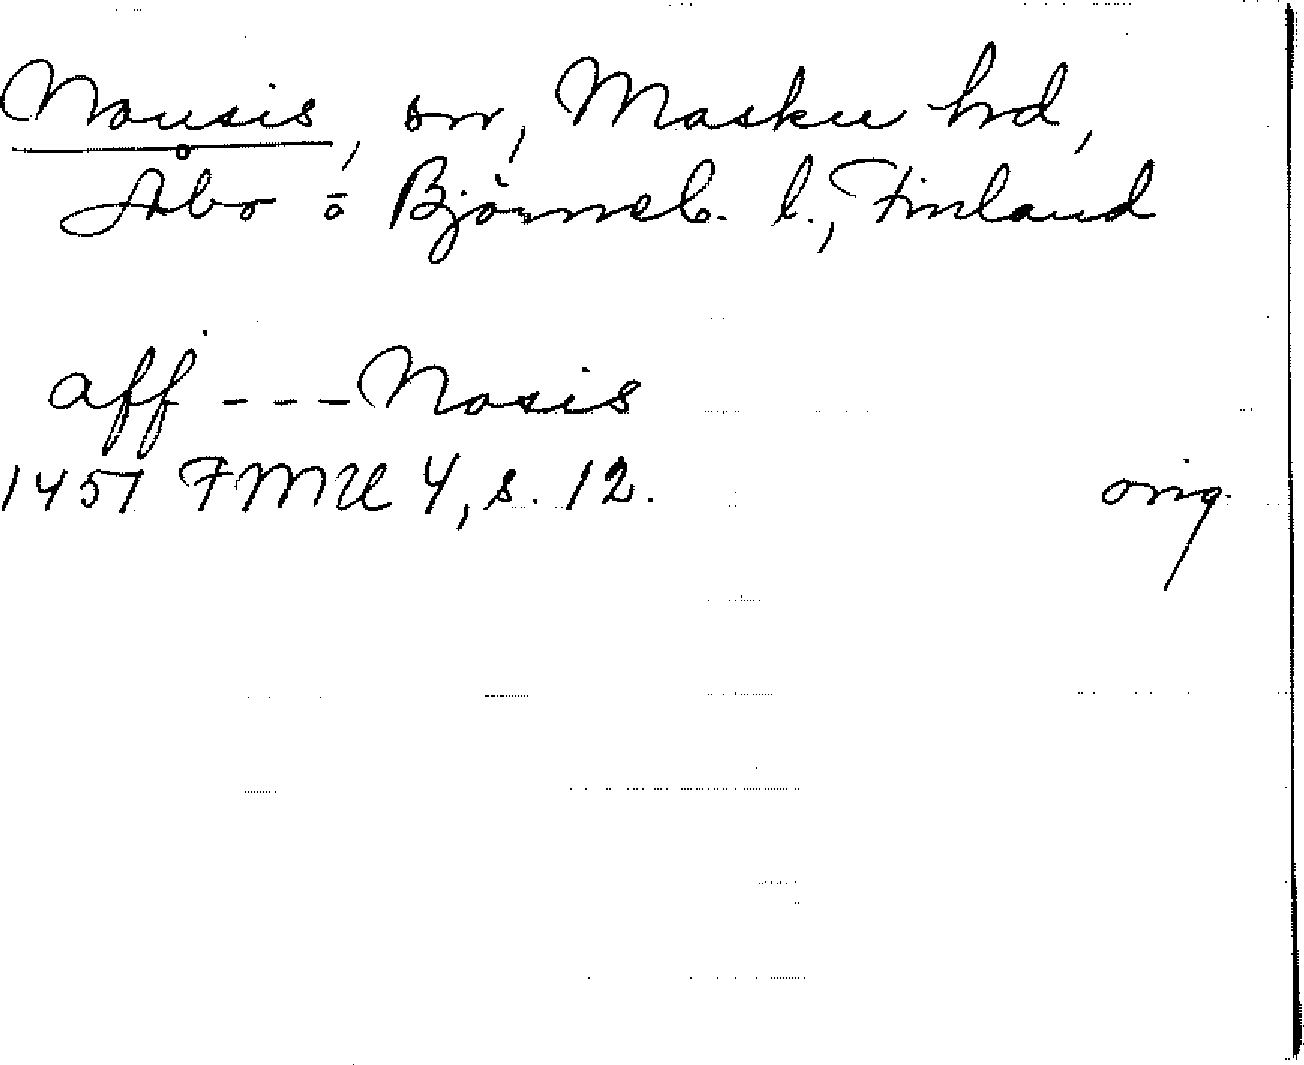 Nousis, sn, Masku hd,
Åbo o Björneb. l., Finland
aff --- Nosis
1457 FMU 4, s. 12.
orig.